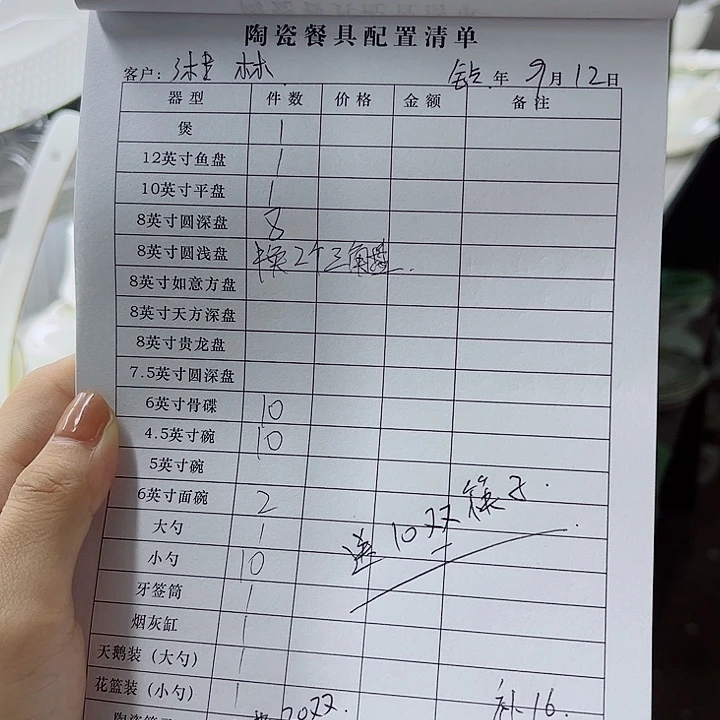 陶瓷餐具配置清单
客户: 林 年 9月12日
器型 件数 价格 金额 备注
煲 1
12英寸鱼盘 1
10英寸平盘 1
8英寸圆深盘 8
8英寸圆浅盘 换2个三角盘.
8英寸如意方盘
8英寸天方深盘
8英寸贵龙盘
7.5英寸圆深盘
6英寸骨碟 10
4.5英寸碗 10
5英寸碗
6英寸面碗 2
送10双筷子.
大勺 1
小勺 10
牙签筒 1
烟灰缸 1
天鹅装（大勺） 1
花篮装（小勺） 1
20双. 补16.